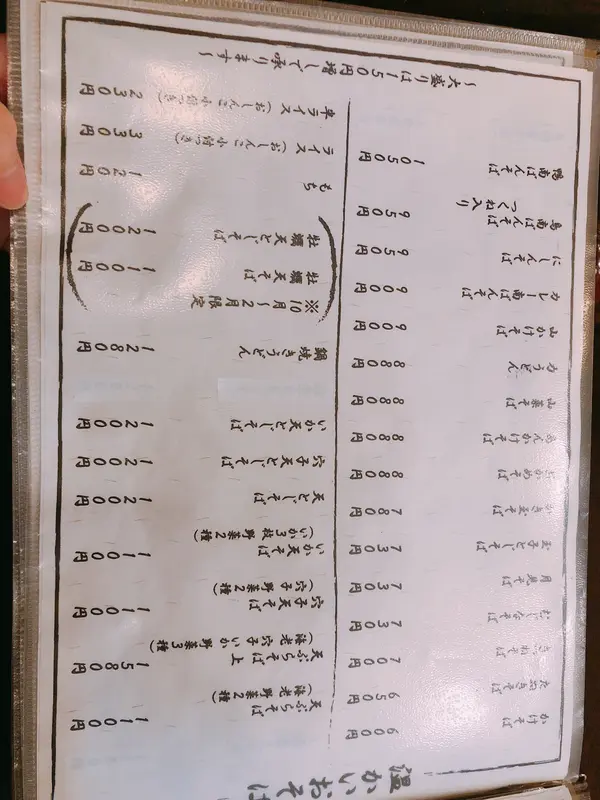 温かいおそば
かけそば 600円
たぬきそば 650円
きつねそば 700円
むじなそば 730円
月見そば 730円
玉子とじそば 730円
かき玉そば 780円
わかめそば 880円
あんかけそば 880円
山菜そば 880円
力うどん 880円
山かけそば 900円
カレー南ばんそば 900円
にしんそば 950円
鳥南ばんそば
つくね入り 950円
鴨南ばんそば 1050円
天ぷらそば
(海老野菜2種) 1100円
天ぷらそば上
(海老穴子いか野菜3種) 1580円
穴子天そば
(穴子野菜2種) 1100円
いか天そば
(いか3枚野菜2種) 1100円
天とじそば 1200円
穴子天とじそば 1200円
いか天とじそば 1200円
鍋焼きうどん 1280円
※10月〜2月限定
牡蠣天そば 1100円
牡蠣天とじそば 1200円
もち 120円
ライス(おしんこ小鉢つき) 330円
半ライス(おしんこ小鉢つき) 230円
〜大盛りは150円増しで承ります〜